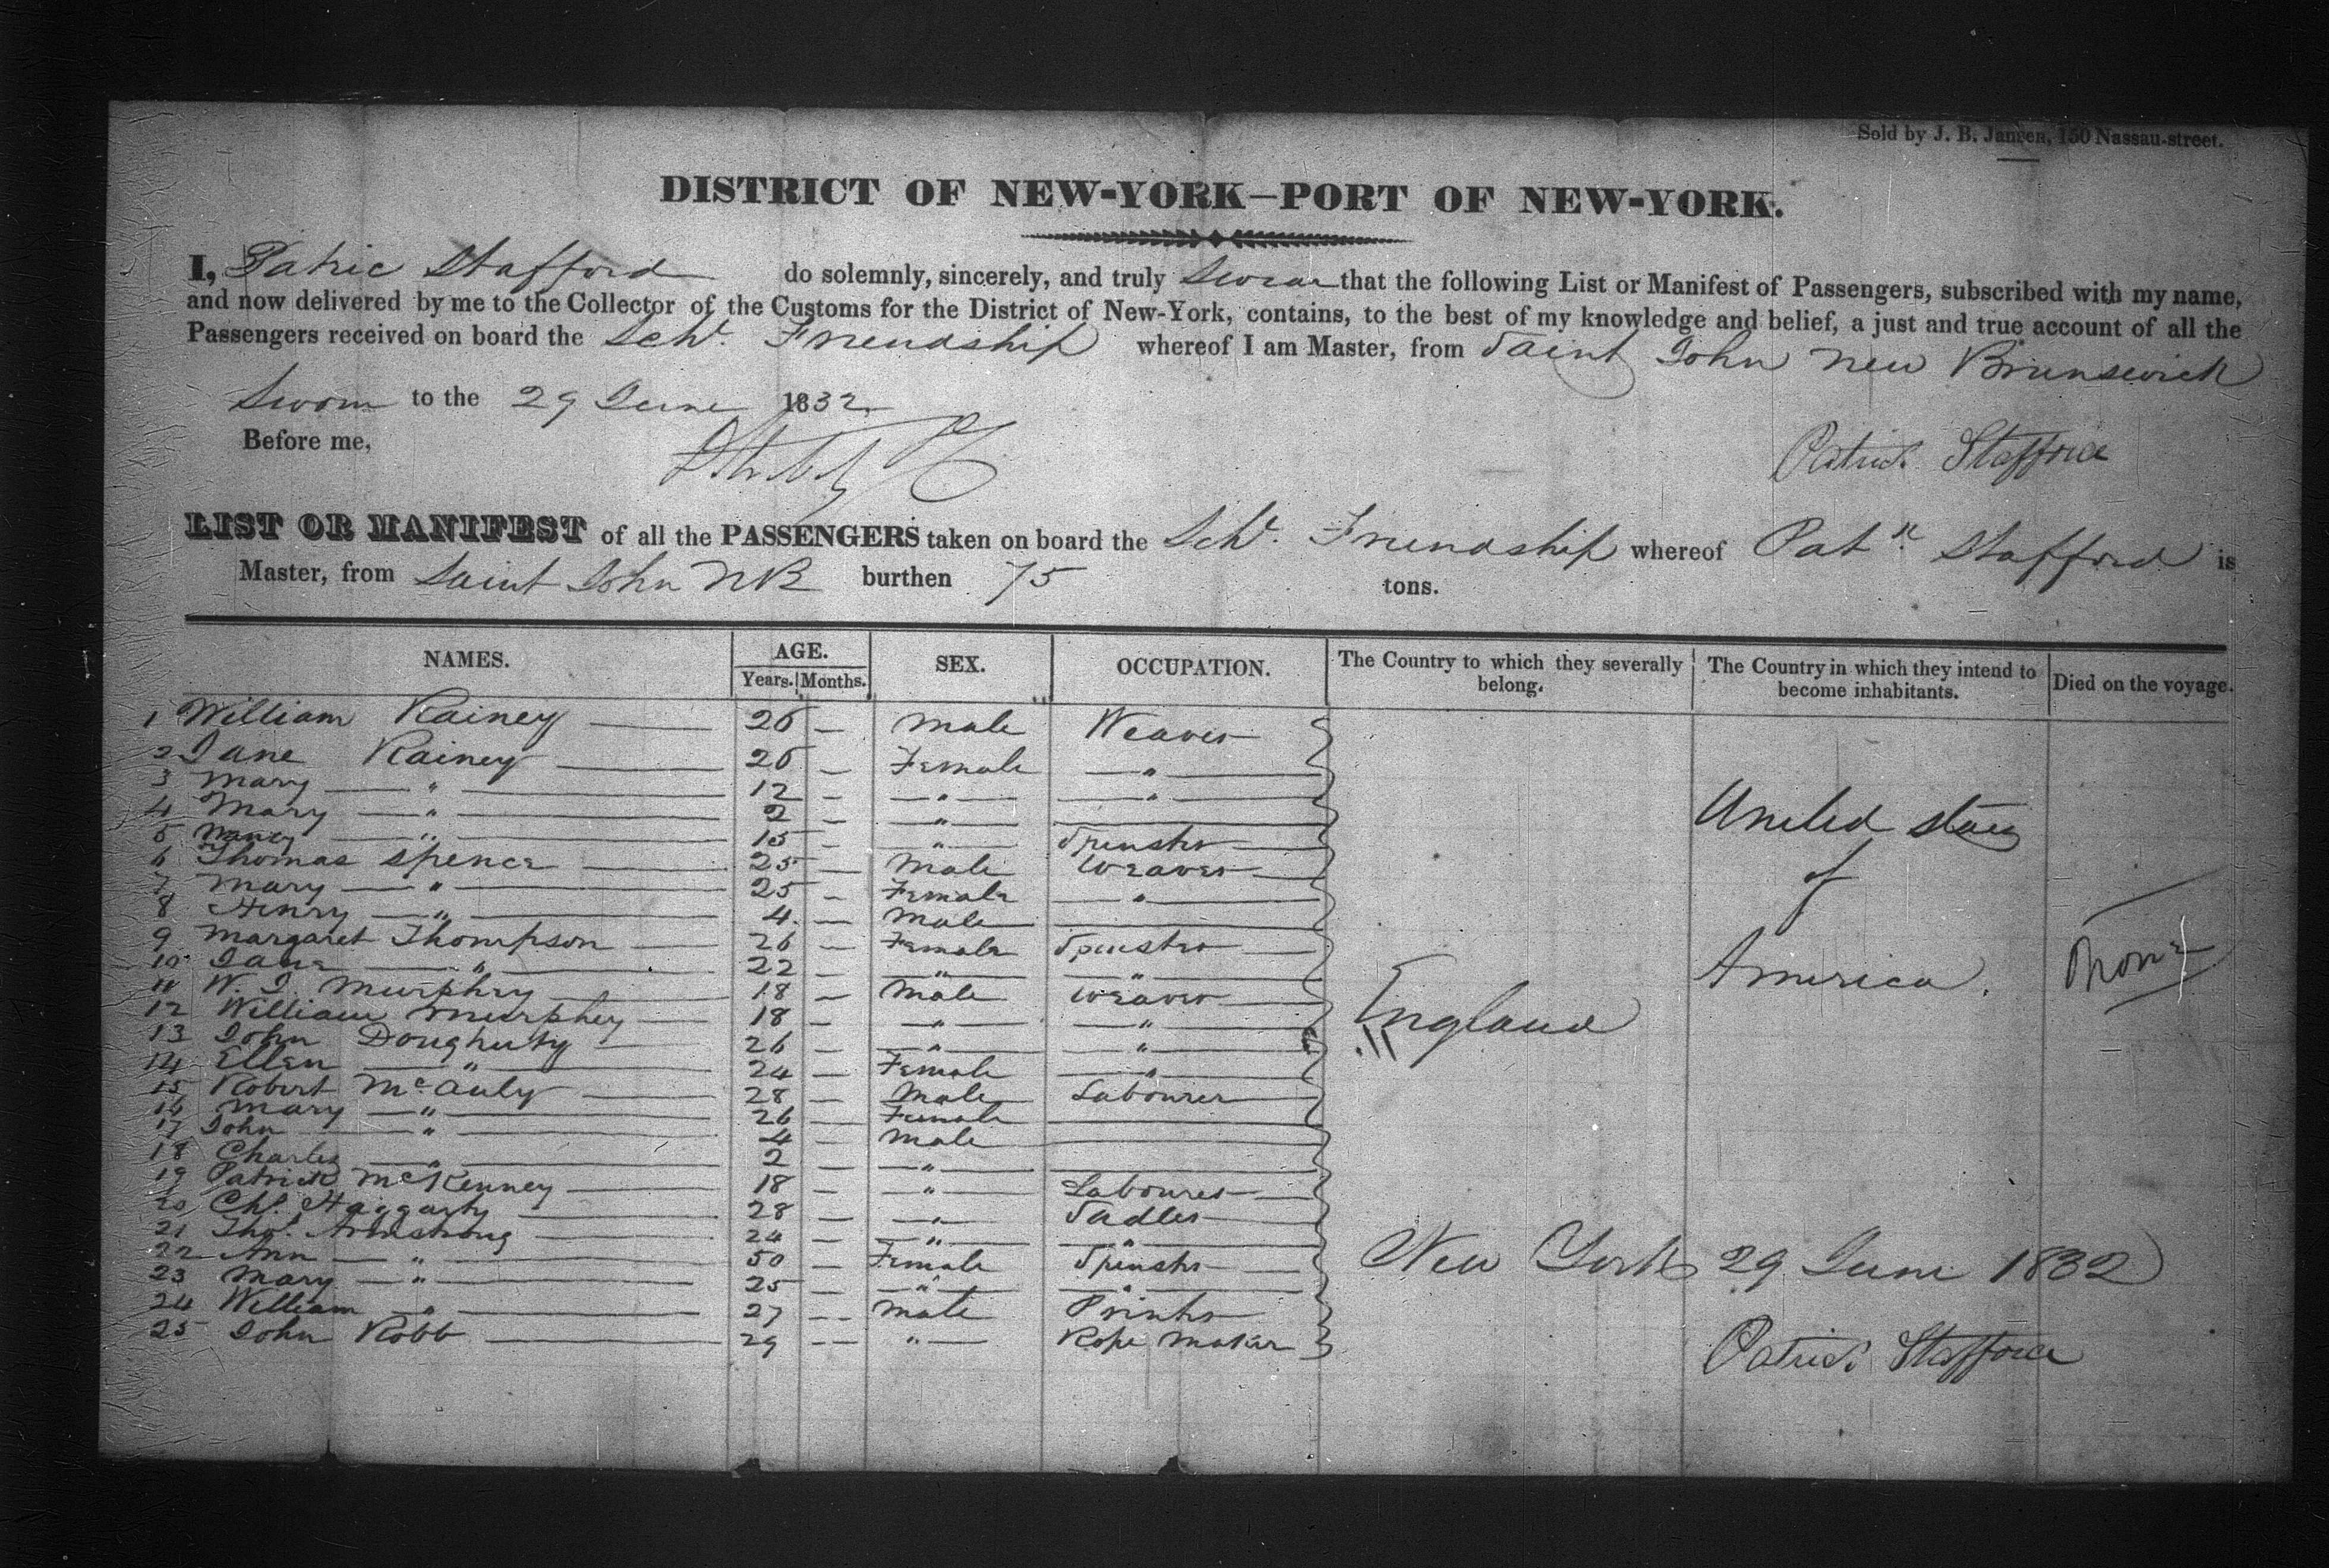 Sold by J. B. Jansen, 150 Nassau-street.
DISTRICT OF NEW-YORK—PORT OF NEW-YORK.
I, Patric Stafford do solemnly, sincerely, and truly Swear that the following List or Manifest of Passengers, subscribed with my name,
and now delivered by me to the Collector of the Customs for the District of New-York, contains, to the best of my knowledge and belief, a just and true account of all the
Passengers received on board the Schr. Friendship whereof I am Master, from Saint John New Brunswick
Sworn to the 29 June 1832
Before me,
Patrick Stafford
LIST OR MANIFEST of all the PASSENGERS taken on board the Schr. Friendship whereof Patk. Stafford is
Master, from Saint John NB burthen 75 tons.
NAMES. AGE. Years. Months. SEX. OCCUPATION. The Country to which they severally belong. The Country in which they intend to become inhabitants. Died on the voyage.
1 William Rainey — 26 — Male Weaver
2 Jane Rainey — 26 — Female — " —
3 Mary — " — 12 — — " — — " —
4 Mary — " — 2 — — " — —
5 Nancy — " — 15 — — " — Spinster
6 Thomas Spence — 25 — Male Weaver
7 Mary — " — 25 — Female — " —
8 Henry — " — 4 — Male —
9 Margaret Thompson — 26 — Female Spinster
10 Jane — " — 22 — — " — — " —
11 W. J. Murphry — 18 — Male Weaver
12 William Murphey — 18 — — " — — " —
13 John Doughurty — 26 — — " — — " —
14 Ellen — " — 24 — Female — " —
15 Robert McAuly — 28 — Male Labourer
16 Mary — " — 26 — Female —
17 John — " — 4 — Male —
18 Charles — " — 2 — — " — —
19 Patrick McKenney — 18 — — " — Labourer
20 Chs. Haggarty — 28 — — " — Sadler
21 Thos. Armstrong — 24 — — " — — " —
22 Ann — " — 50 — Female Spinster
23 Mary — " — 25 — — " — — " —
24 William — " — 27 — Male Printer
25 John Robb — 29 — — " — Rope Maker
England
United States
of
America.
None
New York 29 June 1832
Patrick Stafford